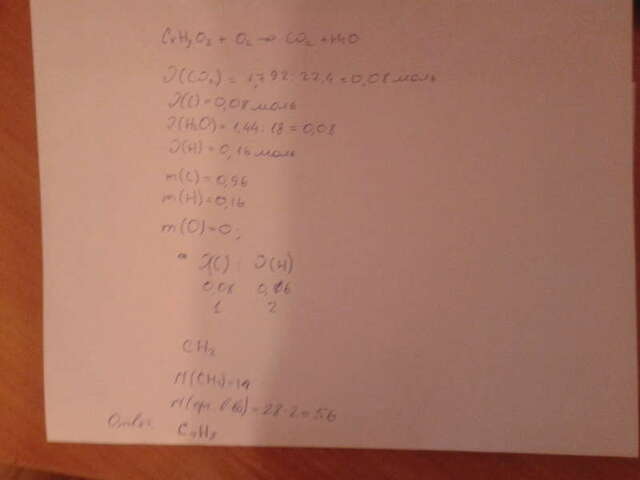 CxHyOz + O2 → CO2 + H2O
ν(CO2) = 1,792 : 22,4 = 0,08 моль
ν(C) = 0,08 моль
ν(H2O) = 1,44 : 18 = 0,08
ν(H) = 0,16 моль
m(C) = 0,96
m(H) = 0,16
m(O) = 0;
ν(C) : ν(H)
0,08 0,16
1 2
CH2
M(CH2) = 14
M(ор. в-ва) = 28·2 = 56
Ответ: C4H8